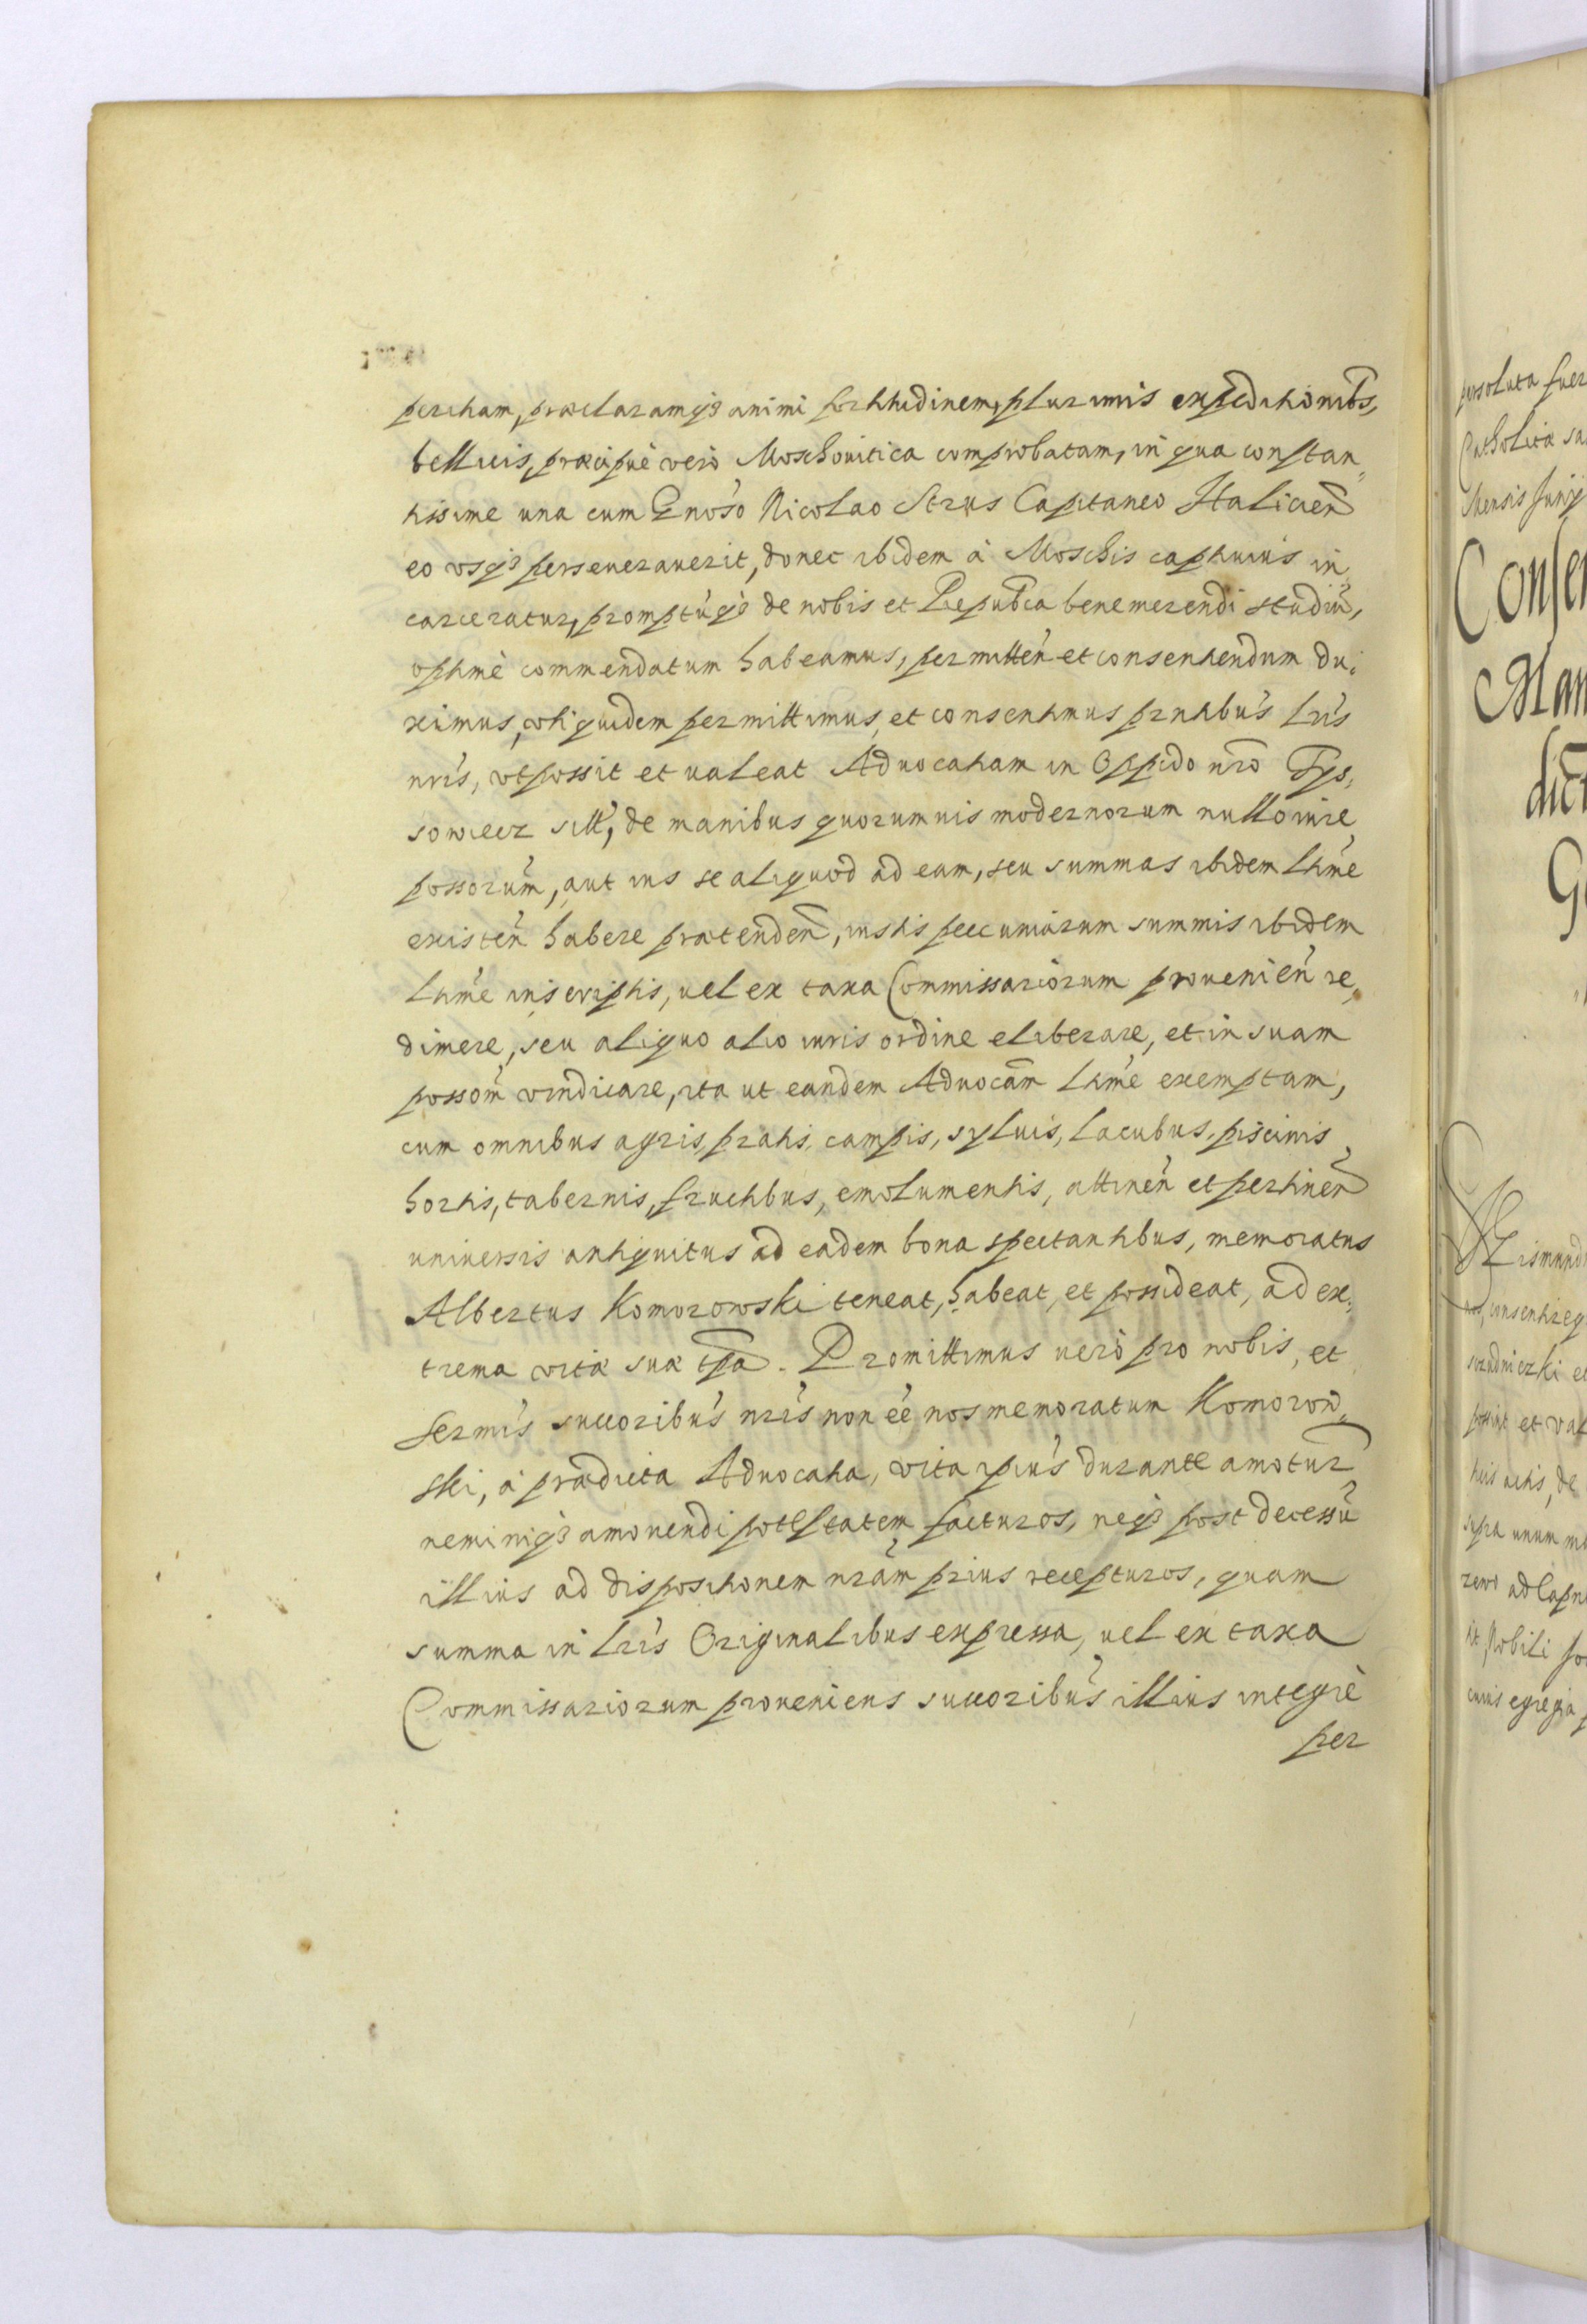 peritiam, præclaramq₃ animi fortitudinem, plurimis expeditionibꝰ,
bellicis, præcipuè verò Moschouitica comprobatam, in qua constan„
tissime una cum Gnoso Nicolao Strus Capitaneo Halicień
eo vsq₃ perseuerauerit, donec ibidem à Moschis captiuus in„
carceratur, promptũq₃ de nobis et Repub̃ca benemerendi studiũ,
optimè commendatum habeamus, permitteń et consentiendum du„
ximus, vti quidem permittimus, et consentimus prntibus Lris
nris, vt possit et ualeat Aduocatiam in Oppido nro Tys„
sowiecz sitt, de manibus quorumuis modernorum nullo iure
possorum, aut ius se aliquod ad eam, seu summas ibidem Ltime
existeń habere prætendeń, iustis pecuniarum summis ibidem
Ltime inscriptis, uel ex taxa Commissariorum prouenień re„
dimere, seu aliquo alio iuris ordine eliberare, et in suam
possom̃ vindicare, ita ut eandem Aduocam̃ Ltime exemptam,
cum omnibus agris, pratis, campis, syluis, lacubus, piscinis
hortis, tabernis, fructibus, emolumentis, attineń et pertineń
uniuersis antiquitus ad eadem bona spectantibus, memoratus
Albertus Komorowski teneat, habeat, et possideat, ad ex„
trema vitæ suæ tp̃a. Promittimus uerò pro nobis, et
Sermis succoribus nris non eẽ nos memoratum Komorow„
ski, à prædicta Aduocatia, vita ipius durante amotur̃
neminiq₃ amouendi potestatem facturos, neq₃ post decessũ
illius ad dispositionem nram̃ prius recepturos, quam
summa in Lris Originalibus expressa, uel ex taxa
Commissariorum proueniens succoribus illius integrè
per
persoluta fuer
Catholicæ sa
Mensis Junij
Consen
Man
dict
Ge
Sigismund
nos, consentireq
et
possint et val
de
supra unum
ad Capn
Nobili
cuius egregia p